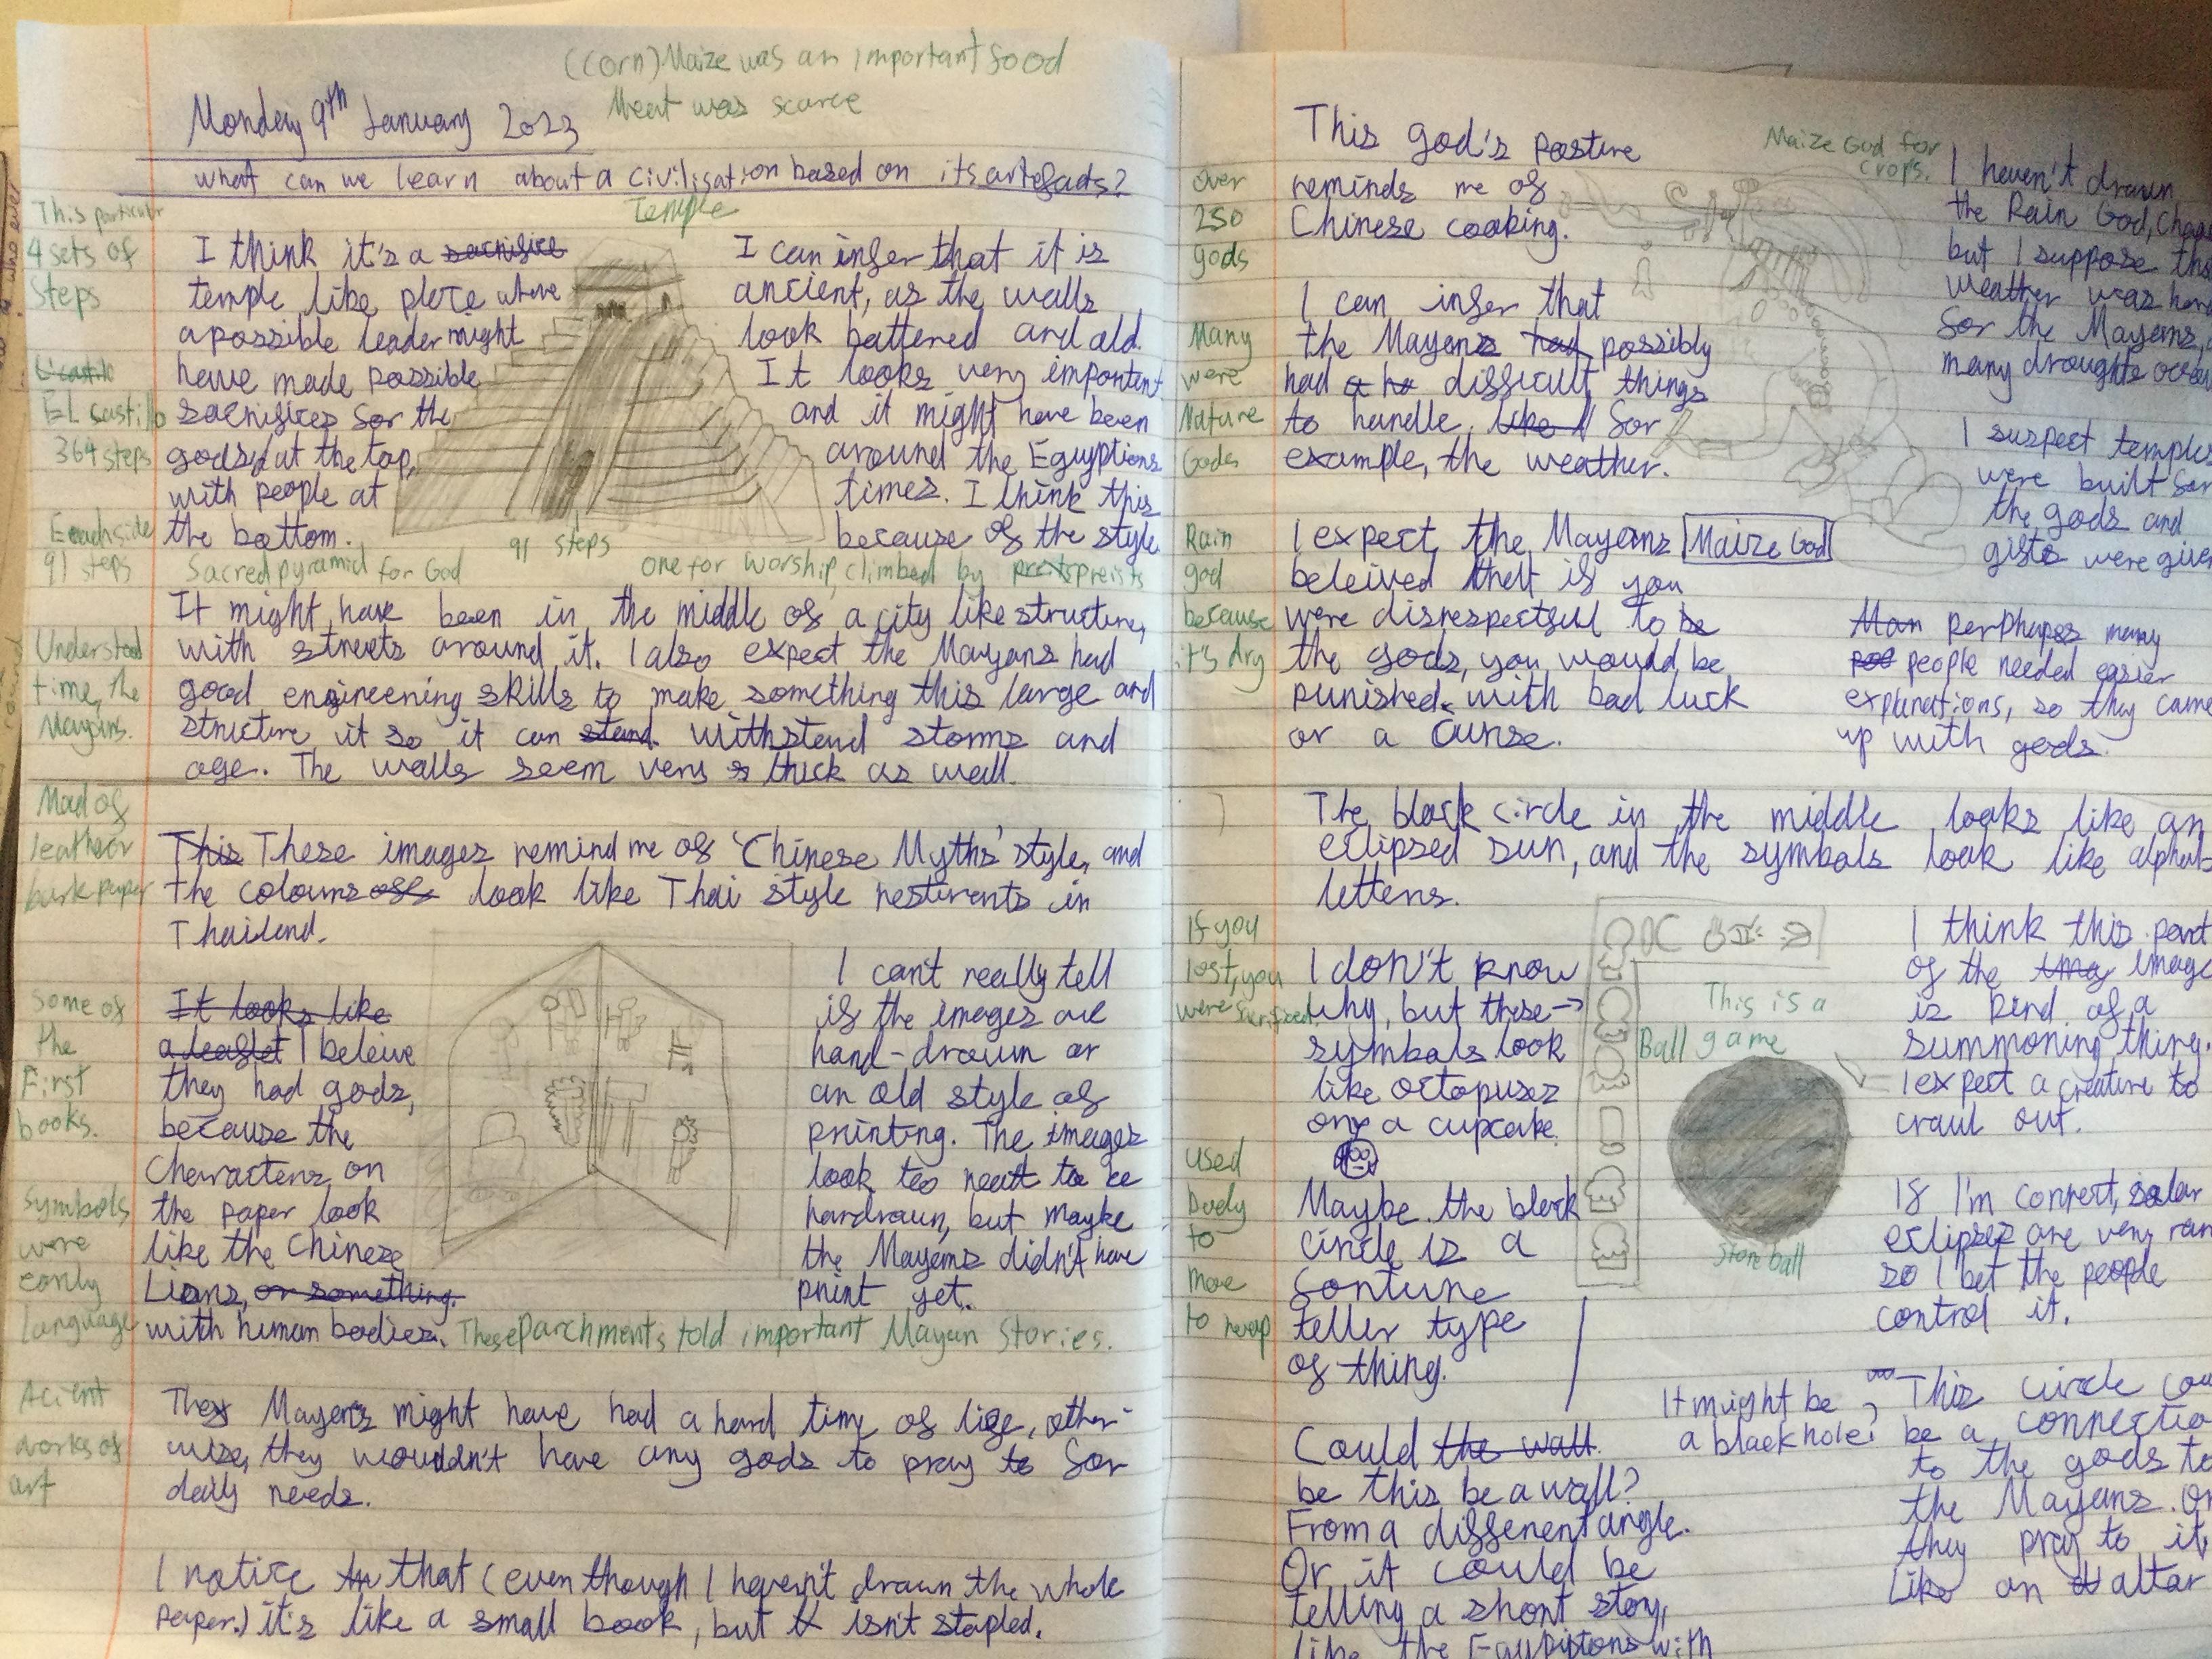 (corn) Maize was an important food
Meat was scarce
Monday 9th January 2023
What can we learn about a civilisation based on its artefacts?
This particular
4 sets of
steps
L'castilo
EL Castillo
364 steps
Each side
91 steps
Understood
time, the
Mayans.
Mad of
leather
bark paper
Some of
the
First
books.
Symbols
were
early
language
Acient
works of
art
Temple
I think it's a sacrifice
temple like place where
a possible leader might
have made possible
sacrifices for the
gods, at the top,
with people at
the bottom.
I can infer that it is
ancient, as the walls
look battered and old.
It looks very important
and it might have been
around the Eguyptions
times. I think this
because of the style
91 steps
Sacred pyramid for God
one for worship, climbed by preists
It might have been in the middle of a city like structure,
with streets around it. I also expect the Mayans had
good engineering skills to make something this large and
structure it so it can stand withstand storms and
age. The walls seem very thick as well.
This These images remind me of 'Chinese Myths' style, and
the colours off look like Thai style resturants in
Thailand.
It looks like
a leaflet I beleive
they had gods,
because the
characters on
the paper look
like the Chinese
Lions, or something.
with human bodies.
I can't really tell
if the images are
hand-drawn or
an old style of
printing. The images
look too neat to be
handrawn, but maybe
the Mayans didn't have
print yet.
These Parchments told important Mayan Stories.
They Mayans might have had a hard time of life, other-
wise, they wouldn't have any gods to pray to for
daily needs.
I notice that (even though I haven't drawn the whole
paper.) it's like a small book, but it isn't stapled.
over
250
gods
Many
were
Nature
Gods
Rain
god
because
it's dry
If you
lost, you
were sacrificed.
used
body
to
move
to hoop
This god's posture
reminds me of
Chinese cooking.
I can infer that
the Mayans had possibly
had difficult things
to handle, like for
example, the weather.
I expect the Mayans
beleived that if you
were disrespectful to be
the gods, you would be
punished with bad luck
or a curse.
Maize God
Maize God for
crops.
I haven't drawn
the Rain God,
but I suppose
weather was
for the Mayans,
many droughts
I suspect temples
were built for
the gods and
gifts were given
Man perphaps many
people needed easier
explanations, so they came
up with gods.
The black circle in the middle looks like an
eclipsed sun, and the symbols look like
letters.
I don't know
why, but these →
symbols look
like octopuses
on a cupcake.
Maybe the black
circle is a
fortune
teller type
of thing.
Could the wall
be this be a wall?
From a different angle.
Or it could be
telling a short story,
like the Egyptions with
This is a
Ball game
Stone ball
I think this part
of the image
is kind of a
summoning thing.
I expect a creature to
crawl out.
If I'm correct, solar
eclipses are very
so I bet the people
control it.
It might be
a black hole?
This circle
be a
to the gods to
the Mayans. Or
they pray to it,
Like an altar